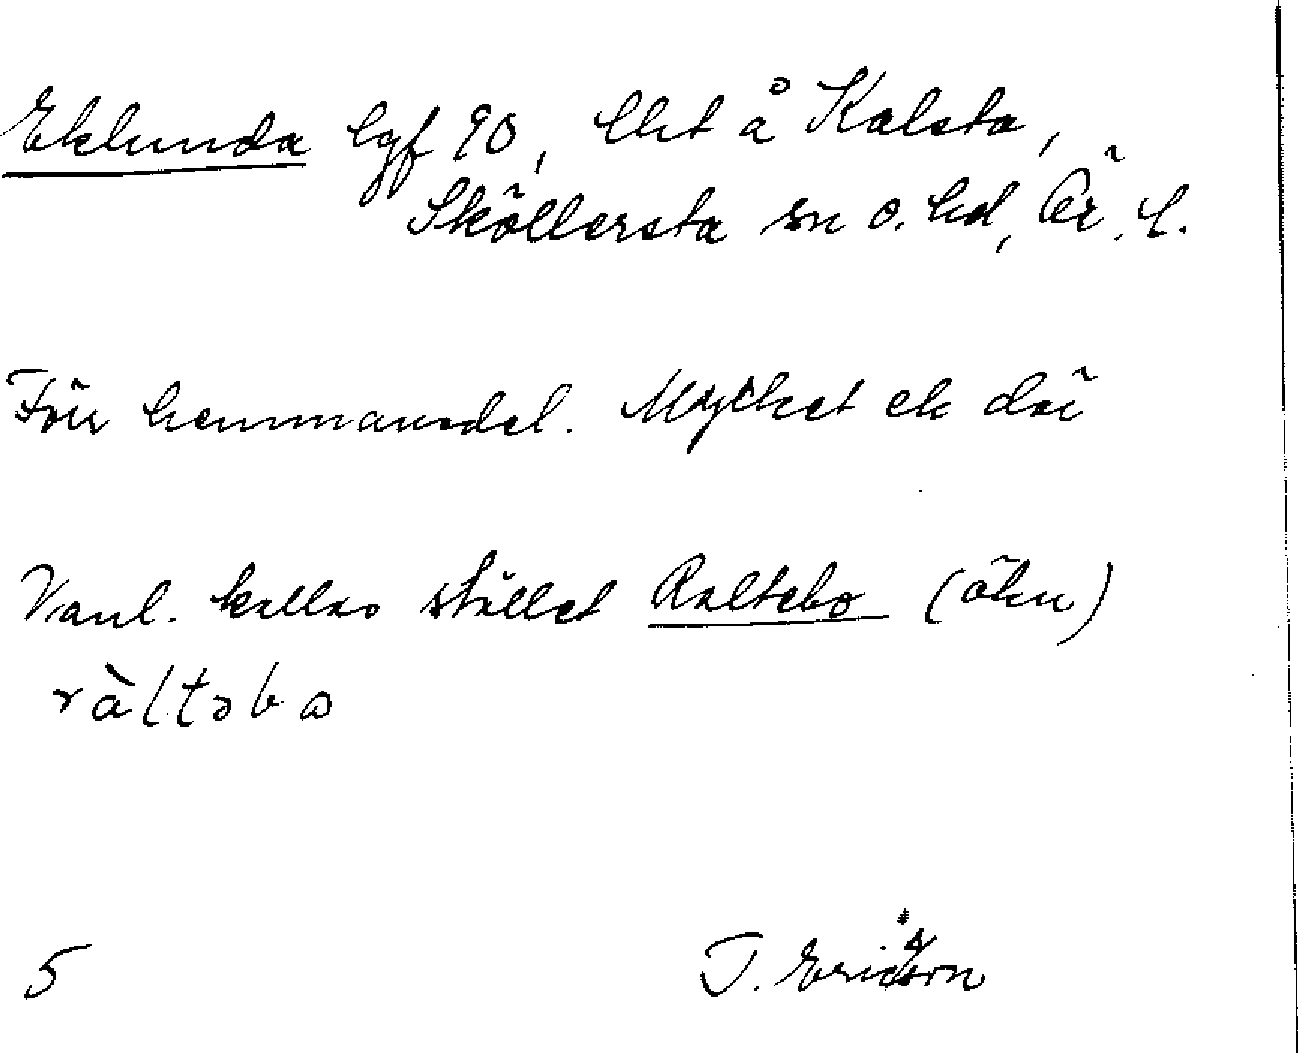 Eklunda lgf 90, lht å Kalsta,
Sköllersta sn o. hd, Ör. l.
Förr hemmansdel. Mycket ek där
Vanl. kallas stället Raltebo (ökn)
ràltəbo
5
T. Ericsson